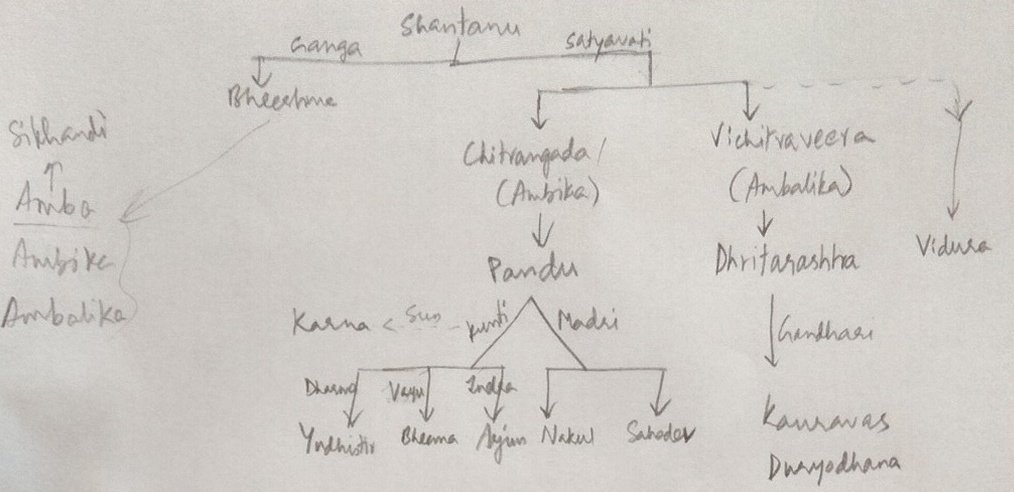 Shantanu
Ganga
Satyavati
Bheeshma
Sikhandi
Amba
Ambika
Ambalika
Chitrangada /
(Ambika)
Vichitraveera
(Ambalika)
Vidura
Pandu
Dhritarashtra
Karna
Sun
Kunti
Madri
Gandhari
Dharma
Vayu
Indra
Yudhistir
Bheema
Arjun
Nakul
Sahadev
Kauravas
Duryodhana